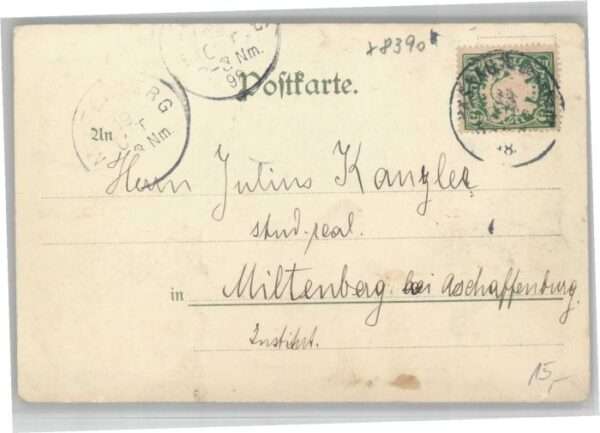 x8390
Postkarte.
An
Herrn Julius Kanzler
stud. real.
in Miltenberg bei Aschaffenburg.
Institut.
15,-